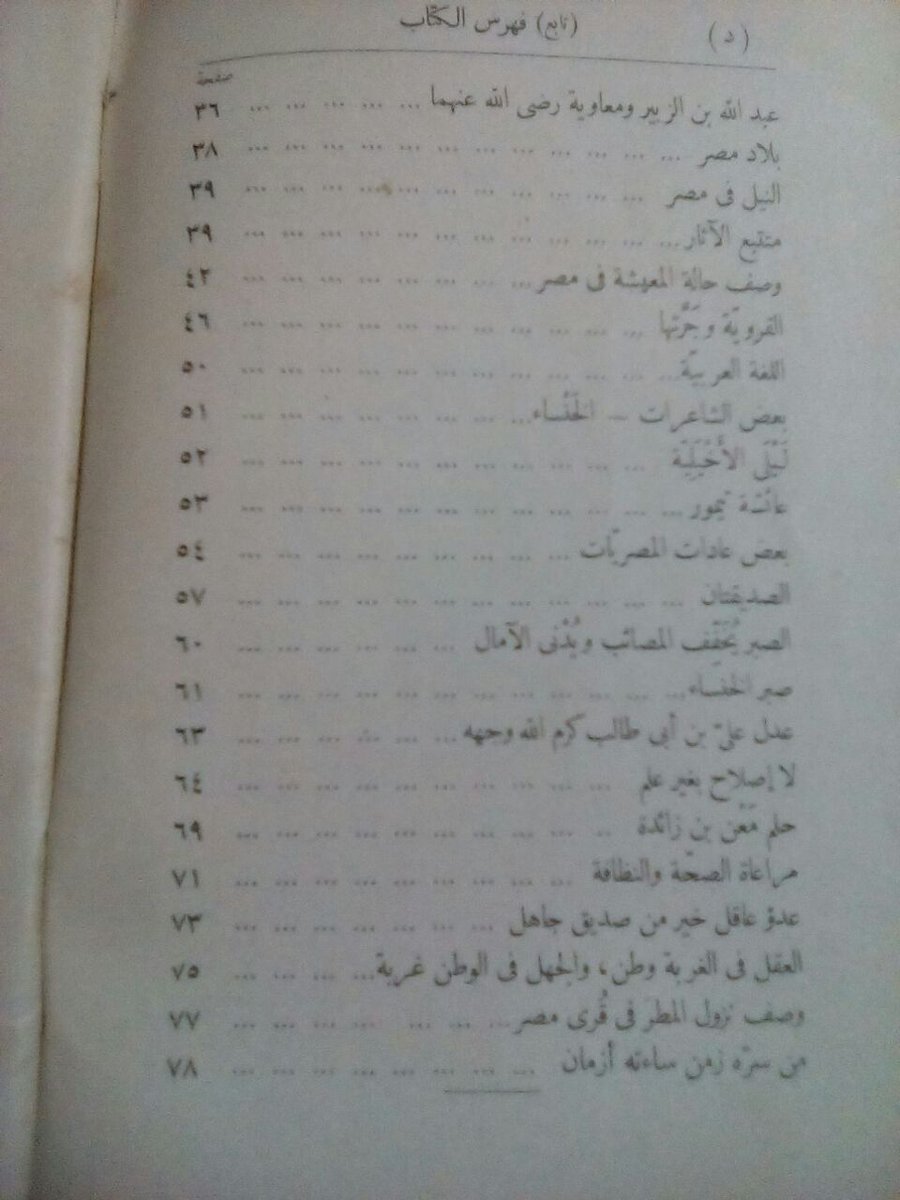 (د) (تابع) فهرس الكتاب
صفحة
عبد الله بن الزبير ومعاوية رضى الله عنهما ... ٣٦
بلاد مصر ... ٣٨
النيل فى مصر ... ٣٩
متتبع الآثار ... ٣٩
وصف حالة المعيشة فى مصر ... ٤٢
القرويّة وجَرَّتها ... ٤٦
اللغة العربيّة ... ٥٠
بعض الشاعرات — الخَنْساء ... ٥١
لَيْلَى الأَخْيَلِيّة ... ٥٢
عائشة تيمور ... ٥٣
بعض عادات المصريّات ... ٥٤
الصديقتان ... ٥٧
الصبر يُخَفِّف المصائب ويُدْنى الآمال ... ٦٠
صبر الخنساء ... ٦١
عدل علىّ بن أبى طالب كرم الله وجهه ... ٦٣
لا إصلاح بغير علم ... ٦٤
حلم مَعْن بن زائدة ... ٦٩
مراعاة الصحّة والنظافة ... ٧١
عدوّ عاقل خير من صديق جاهل ... ٧٣
العقل فى الغربة وطن، والجهل فى الوطن غربة ... ٧٥
وصف نزول المطر فى قُرى مصر ... ٧٧
من سرّه زمن ساءته أزمان ... ٧٨